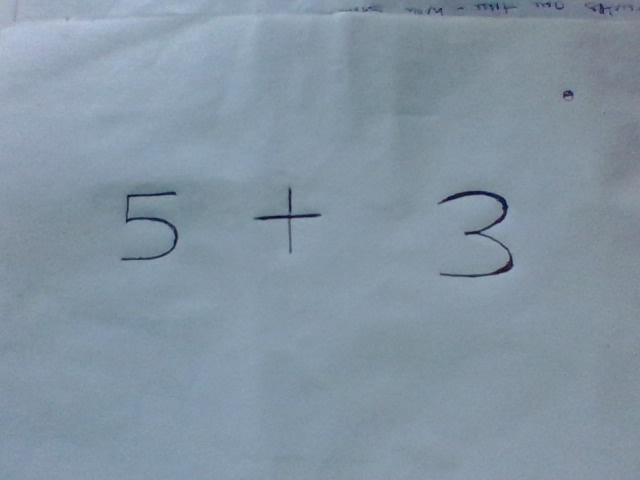 5 + 3